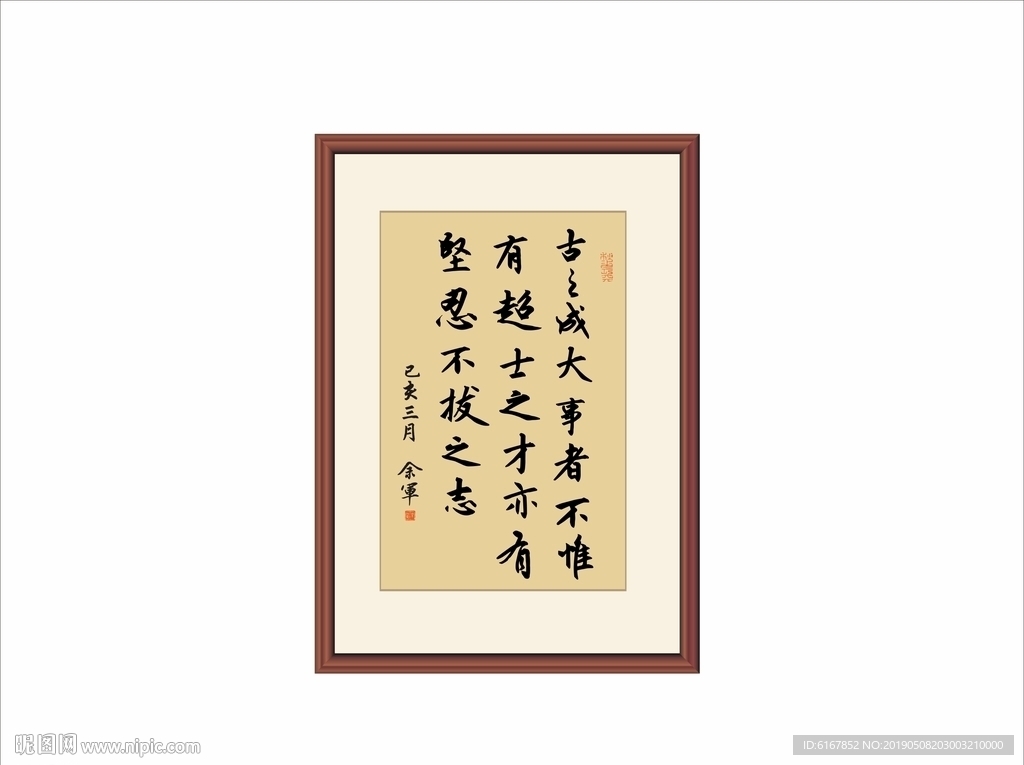 古之成大事者不惟
有超士之才亦有
堅忍不拔之志
己亥三月 余軍
昵图网 www.nipic.com
ID:6167852 NO:20190508203003210000